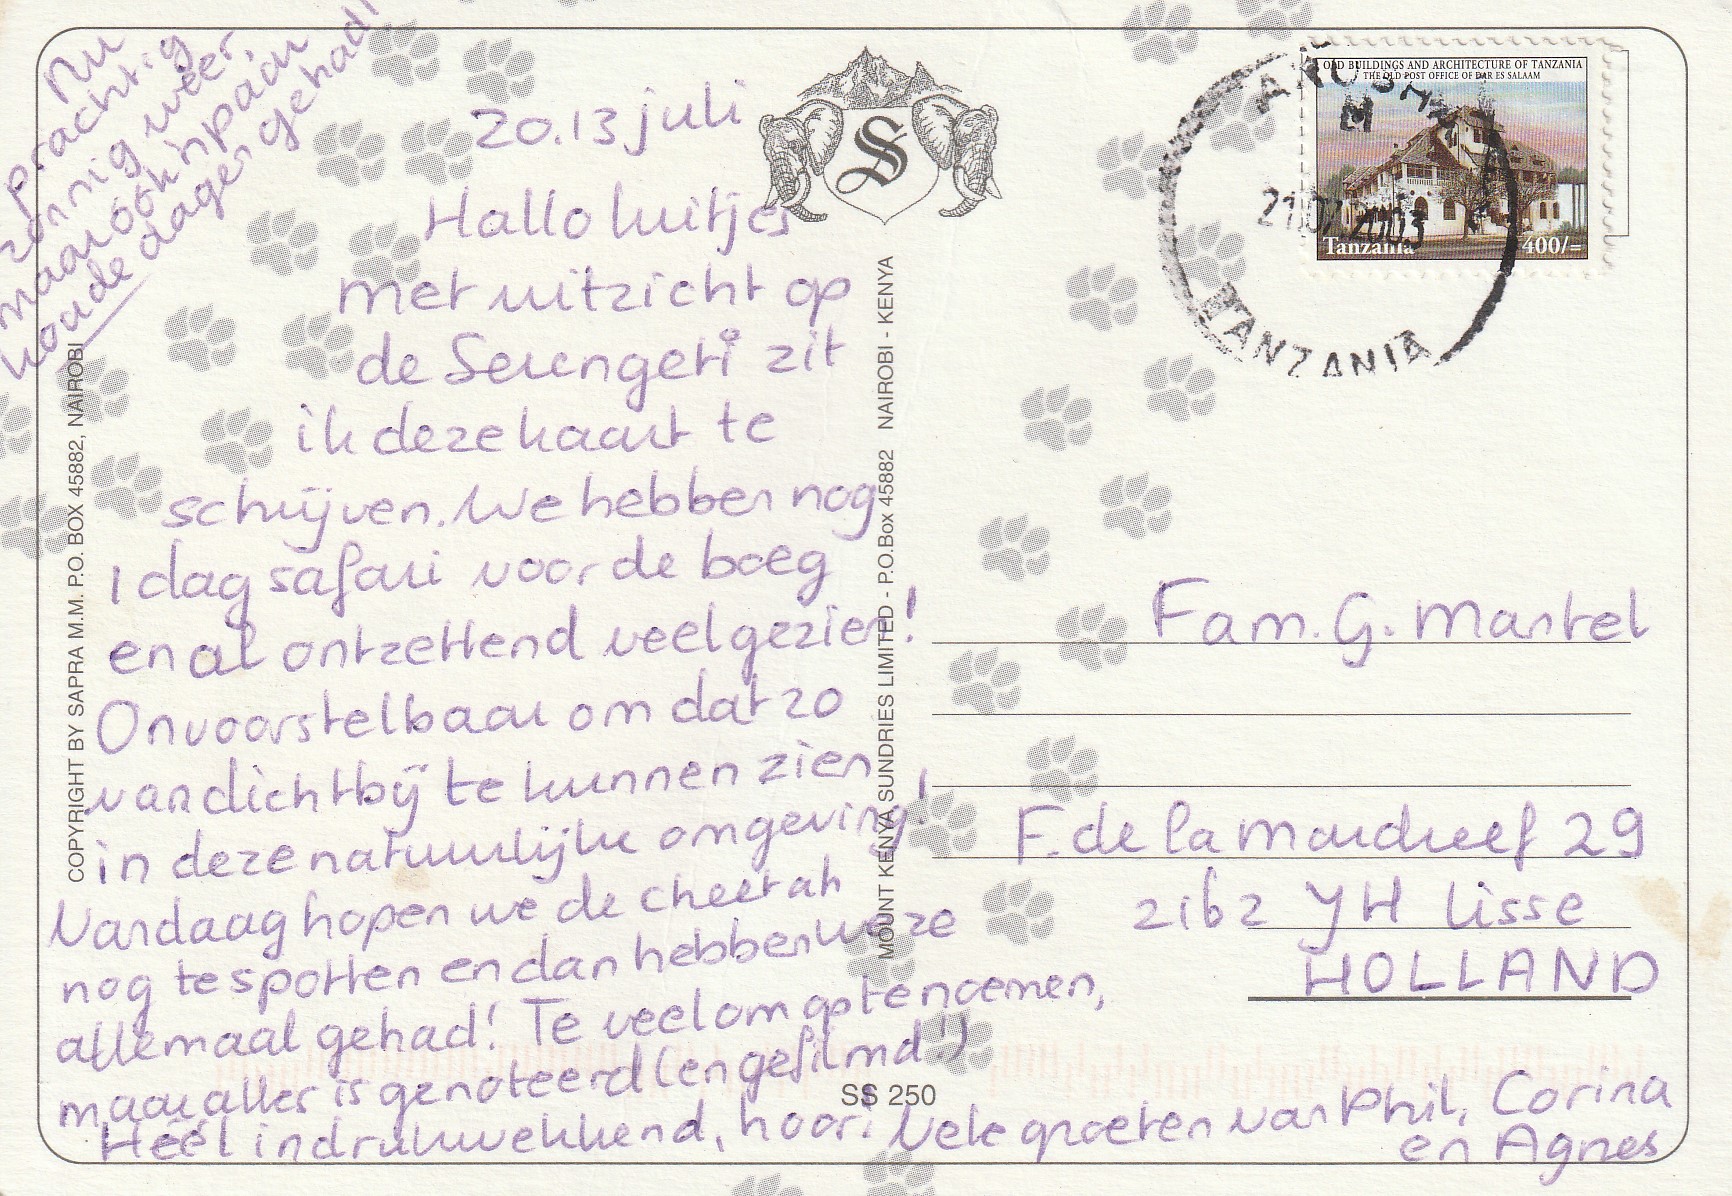 Nu
prachtig
zonnig weer,
maar ook 'n paar
koude dagen gehad!
20.13 juli
Hallo luitjes
met uitzicht op
de Serengeti zit
ik deze kaart te
schrijven. We hebben nog
1 dag safari voor de boeg
en al ontzettend veel gezien!
Onvoorstelbaar om dat zo
van dichtbij te kunnen zien
in deze natuurlijke omgeving!
Vandaag hopen we de cheetah
nog te spotten en dan hebben we ze
allemaal gehad! Te veel om op te noemen,
maar alles is genoteerd (en gefilmd!!)
Héél indrukwekkend, hoor! Vele groeten van Phil, Corina
en Agnes
COPYRIGHT BY SAPRA M.M. P.O. BOX 45882, NAIROBI
MOUNT KENYA SUNDRIES LIMITED - P.O.Box 45882 NAIROBI - KENYA
S
SS 250
OLD BUILDINGS AND ARCHITECTURE OF TANZANIA
THE OLD POST OFFICE OF DAR ES SALAAM
Tanzania 400/=
ARUSHA
M
21.07.2003
TANZANIA
Fam. G. Martel
F. de la Mardreef 29
2162 YH Lisse
HOLLAND